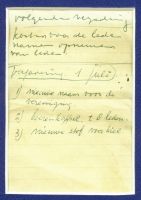 volgende vergadering
kosten voor de leden
namen opnemen
van leden.
Vergadering 1 juli
1) nieuwe naam voor de
vereniging
2) t 8 leden.
3) nieuwe stof voor